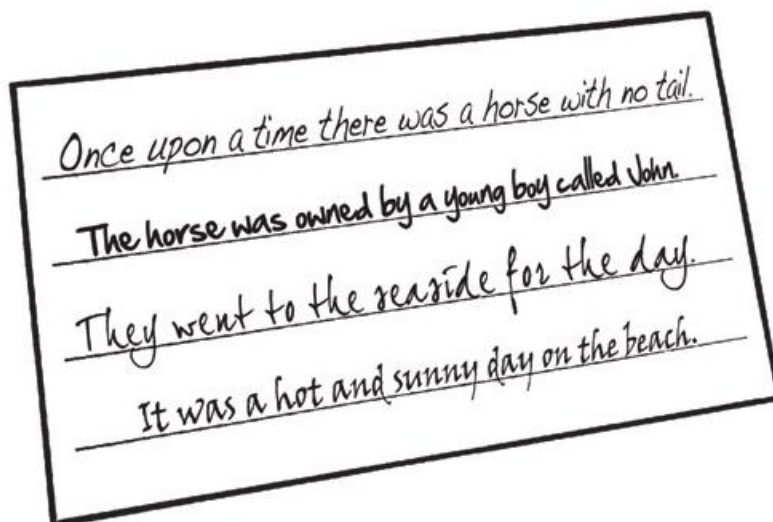 Once upon a time there was a horse with no tail.
The horse was owned by a young boy called John.
They went to the seaside for the day.
It was a hot and sunny day on the beach.